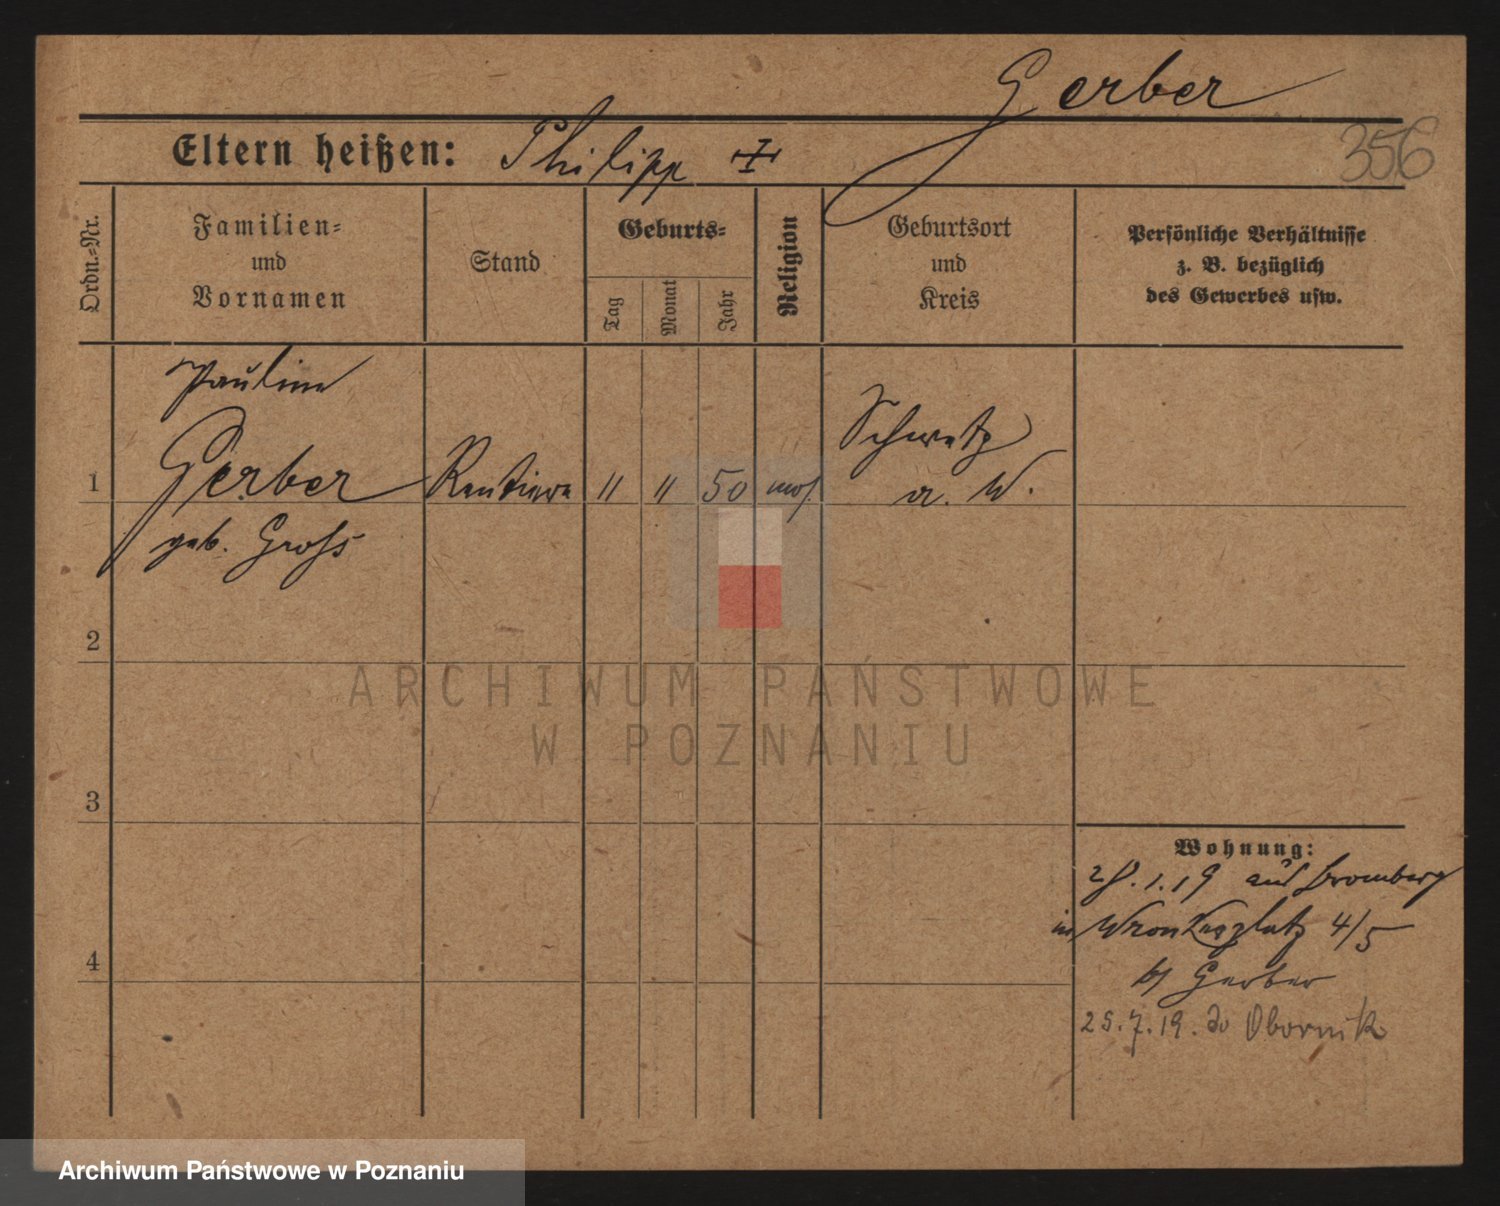 Gerber
356
Eltern heißen: Philipp
Ordn.-Nr.
Familien-
und
Vornamen
Stand
Geburts-
Tag
Monat
Jahr
Religion
Geburtsort
und
Kreis
Persönliche Verhältnisse
z. B. bezüglich
des Gewerbes usw.
Pauline
1 Gerber Rentiere " " 50 mos. Schwetz
a. W.
geb. Groß
2
ARCHIWUM PAŃSTWOWE
W POZNANIU
3
Wohnung:
28.1.19 aus Bromberg
in Wronkerplatz 4/5
b/ Gerber
4
25.7.19. do Obornik
Archiwum Państwowe w Poznaniu